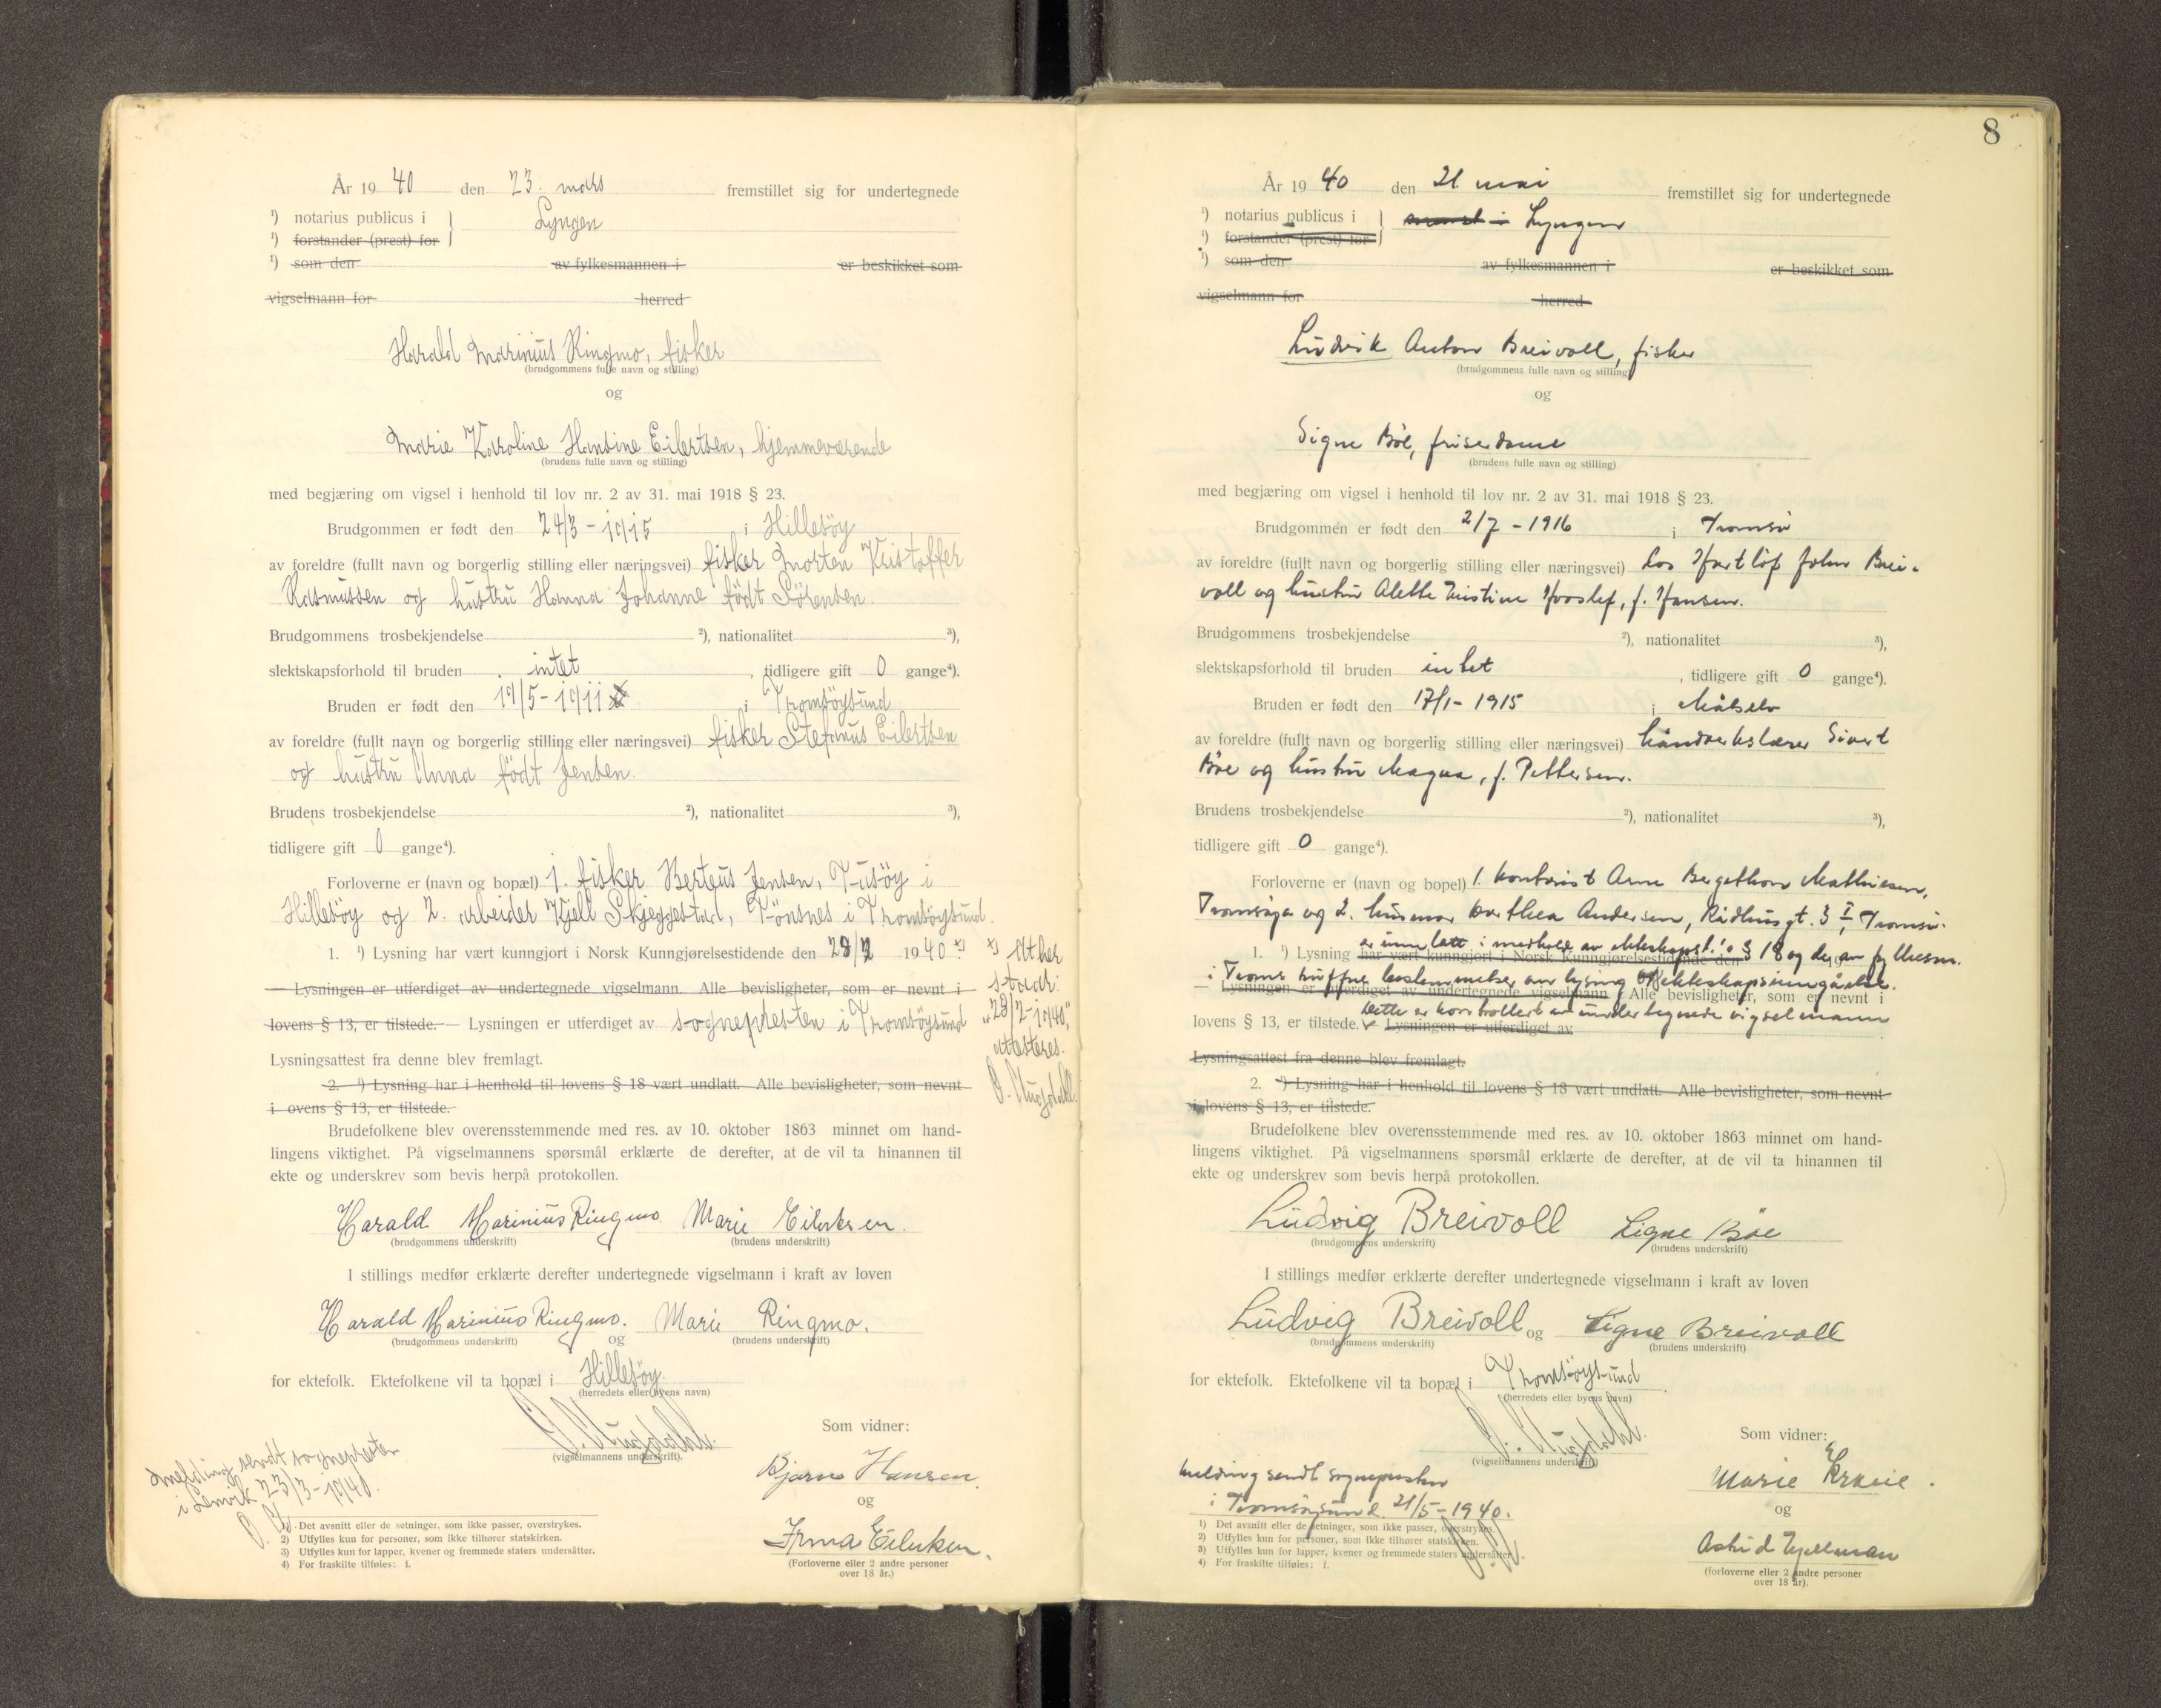 År 1940 den 23. mars fremstillet sig for undertegnede
¹) notarius publicus i } Lyngen
¹) forstander (prest) for
¹) som den av fylkesmannen i er beskikket som
vigselmann for herred
Harald Marinius Ringmo, fisker
(brudgommens fulle navn og stilling)
og
Marie Karoline Hansine Eilertsen, hjemmeværende
(brudens fulle navn og stilling)
med begjæring om vigsel i henhold til lov nr. 2 av 31. mai 1918 § 23.
Brudgommen er født den 24/3 - 1915 i Hillesöy
av foreldre (fullt navn og borgerlig stilling eller næringsvei) fisker Morten Kristoffer
Rasmussen og hustru Hanna Johanne födt Sörensen.
Brudgommens trosbekjendelse ²), nationalitet ³),
slektskapsforhold til bruden intet, tidligere gift 0 gange⁴).
Bruden er født den 19/5 - 1911 i Tromsöysund
av foreldre (fullt navn og borgerlig stilling eller næringsvei) fisker Stefanus Eilertsen
og hustru Anna födt Jensen.
Brudens trosbekjendelse ²), nationalitet ³),
tidligere gift 0 gange⁴).
Forloverne er (navn og bopæl) 1. fisker Berteus Jensen, Tusöy i
Hillesöy og 2. arbeider Kjell Skjeggestad, Tönsnes i Tromsöysund.
1. ¹) Lysning har vært kunngjort i Norsk Kunngjørelsestidende den 28/2 1940 x)
Lysningen er utferdiget av undertegnede vigselmann. Alle bevisligheter, som er nevnt i
lovens § 13, er tilstede. — Lysningen er utferdiget av sognepresten i Tromsöysund
Lysningsattest fra denne blev fremlagt.
x) At her
står:
"28/2-1940"
attesteres.
2. ¹) Lysning har i henhold til lovens § 18 vært undlatt. Alle bevisligheter, som nevnt
i ovens § 13, er tilstede.
Brudefolkene blev overensstemmende med res. av 10. oktober 1863 minnet om hand-
lingens viktighet. På vigselmannens spørsmål erklærte de derefter, at de vil ta hinannen til
ekte og underskrev som bevis herpå protokollen.
Harald Marinius Ringmo. Marie Eilertsen.
(brudgommens underskrift) (brudens underskrift)
I stillings medfør erklærte derefter undertegnede vigselmann i kraft av loven
Harald Marinius Ringmo. og Marie Ringmo.
(brudgommens underskrift) (brudens underskrift)
for ektefolk. Ektefolkene vil ta bopæl i Hillesöy.
(herredets eller byens navn)
(vigselmannens underskrift).
Som vidner:
Bjarne Hansen
og
Irma Eilertsen.
(Forloverne eller 2 andre personer
over 18 år.)
Melding sendt sognepresten
i Lenvik 23/3-1940.
1) Det avsnitt eller de setninger, som ikke passer, overstrykes.
2) Utfylles kun for personer, som ikke tilhører statskirken.
3) Utfylles kun for lapper, kvener og fremmede staters undersåtter.
4) For fraskilte tilføies: f.
8
År 1940 den 21. mai fremstillet sig for undertegnede
¹) notarius publicus i } Lyngen
¹) forstander (prest) for
¹) som den av fylkesmannen i er beskikket som
vigselmann for herred
Ludvik Anton Breivoll, fisker
(brudgommens fulle navn og stilling)
og
Signe Böe, friserdame
(brudens fulle navn og stilling)
med begjæring om vigsel i henhold til lov nr. 2 av 31. mai 1918 § 23.
Brudgommen er født den 2/7 - 1916 i Tromsö
av foreldre (fullt navn og borgerlig stilling eller næringsvei) los John Brei-
voll og hustru Alette f. Hansen.
Brudgommens trosbekjendelse ²), nationalitet ³),
slektskapsforhold til bruden intet, tidligere gift 0 gange⁴).
Bruden er født den 17/1 - 1915 i Målselv
av foreldre (fullt navn og borgerlig stilling eller næringsvei) håndverkslærer Sivert
Böe og hustru Magna, f. Pettersen.
Brudens trosbekjendelse ²), nationalitet ³),
tidligere gift 0 gange⁴).
Forloverne er (navn og bopel) 1. kontorist Arne Bergethon Mathiesen,
Tromsöya og 2. husmor Dorthea Andersen, Rådhusgt. 3 I, Tromsö.
er unnlatt i medhold av ekteskapsl.'s § 18 og de av fylkesm.
1. ¹) Lysning har vært kunngjort i Norsk Kunngjørelsestidende den
i Troms trufne bestemmelser om lysing og ekteskapsinngåelse.
Lysningen er utferdiget av undertegnede vigselmann. Alle bevisligheter, som er nevnt i
Dette er kontrollert av undertegnede vigselmann
lovens § 13, er tilstede. Lysningen er utferdiget av
Lysningsattest fra denne blev fremlagt.
2. ¹) Lysning har i henhold til lovens § 18 vært undlatt. Alle bevisligheter, som nevnt
i lovens § 13, er tilstede.
Brudefolkene blev overensstemmende med res. av 10. oktober 1863 minnet om hand-
lingens viktighet. På vigselmannens spørsmål erklærte de derefter, at de vil ta hinannen til
ekte og underskrev som bevis herpå protokollen.
Ludvig Breivoll Signe Böe
(brudgommens underskrift) (brudens underskrift)
I stillings medfør erklærte derefter undertegnede vigselmann i kraft av loven
Ludvig Breivoll og Signe Breivoll
(brudgommens underskrift) (brudens underskrift)
for ektefolk. Ektefolkene vil ta bopæl i Tromsöysund
(herredets eller byens navn)
(vigselmannens underskrift)
Som vidner:
Marie
og
Astrid Kjellman
(forloverne eller 2 andre personer
over 18 år).
Melding sendt sognepresten
i Tromsöysund 21/5-1940.
1) Det avsnitt eller de setninger, som ikke passer, overstrykes.
2) Utfylles kun for personer, som ikke tilhører statskirken.
3) Utfylles kun for lapper, kvener og fremmede staters undersåtter.
4) For fraskilte tilføies: f.